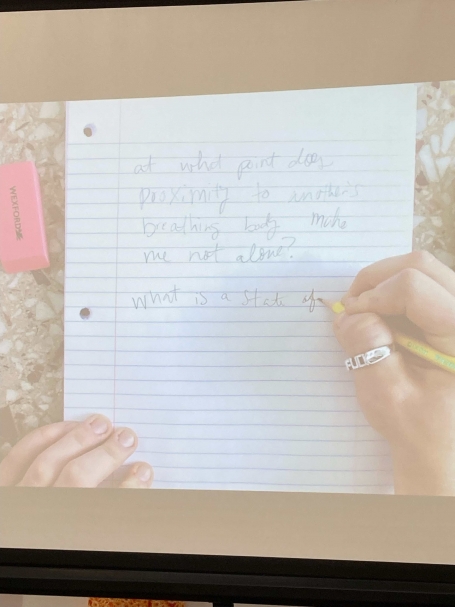 at what point does
proximity to another's
breathing body make
me not alone?
what is a state of
WEXFORD